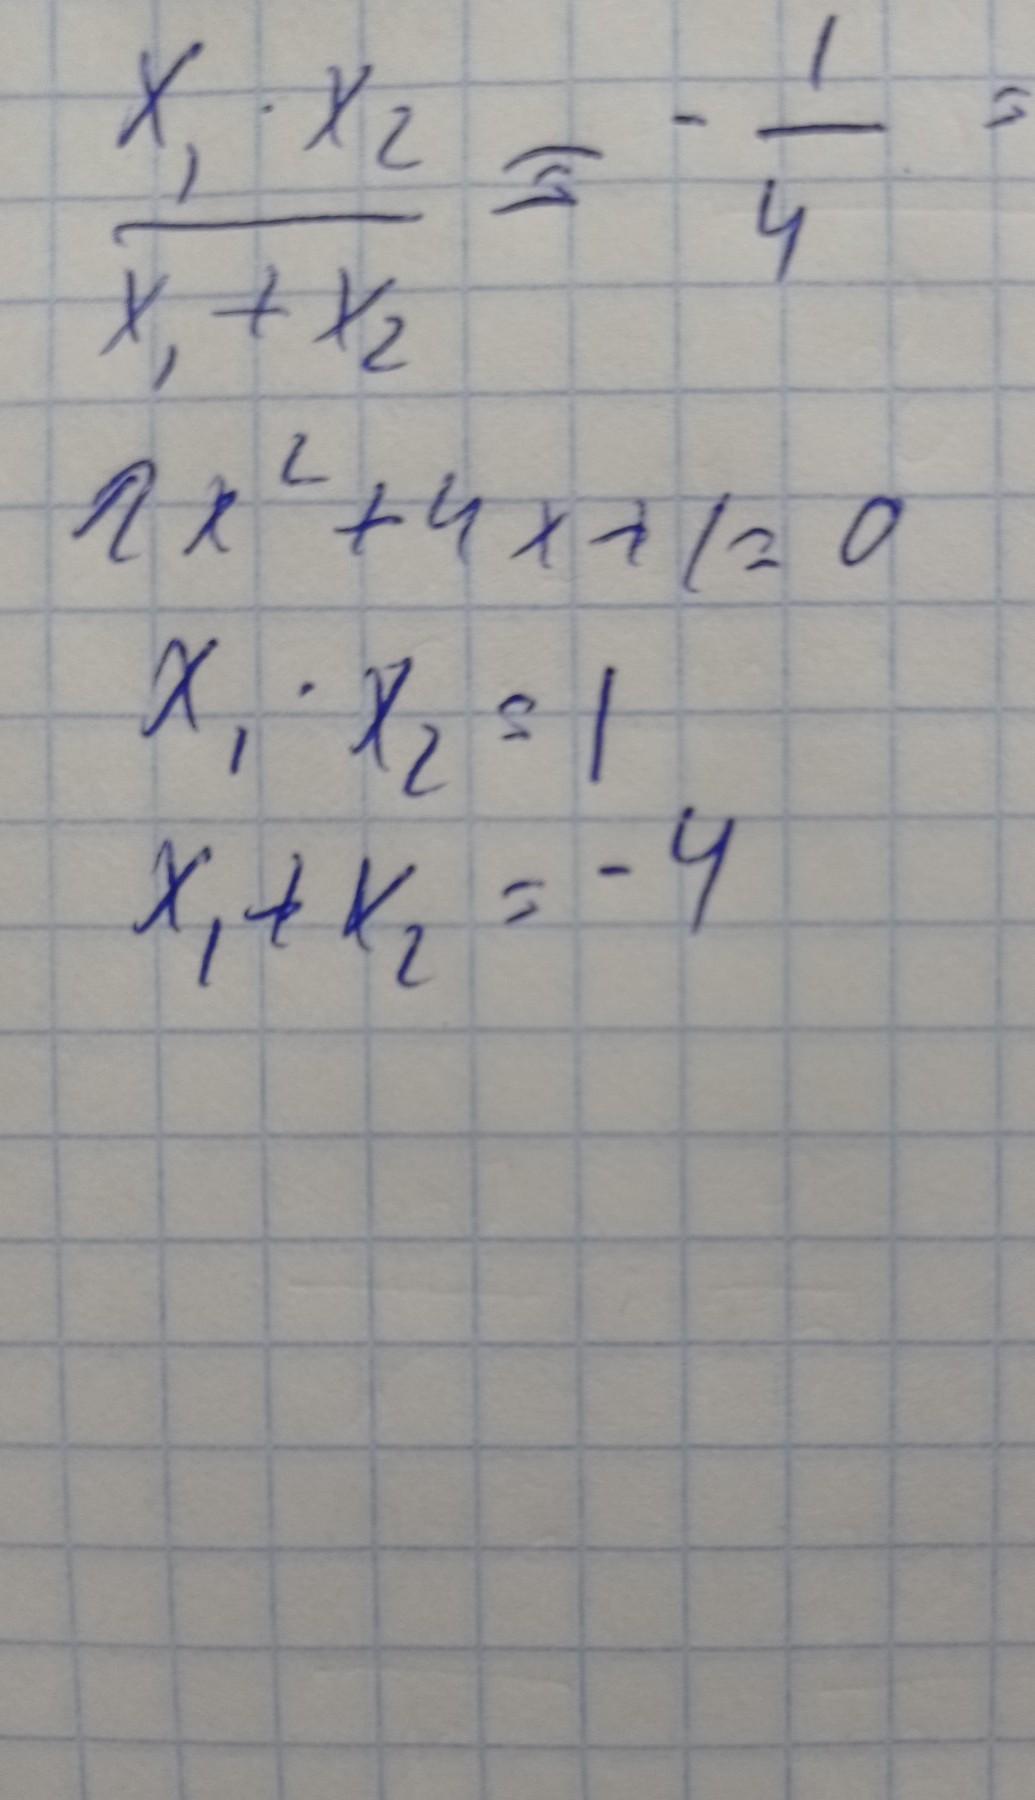 x₁ · x₂ / x₁ + x₂ = - 1/4 =
2x² + 4x + 1 = 0
x₁ · x₂ = 1
x₁ + x₂ = -4